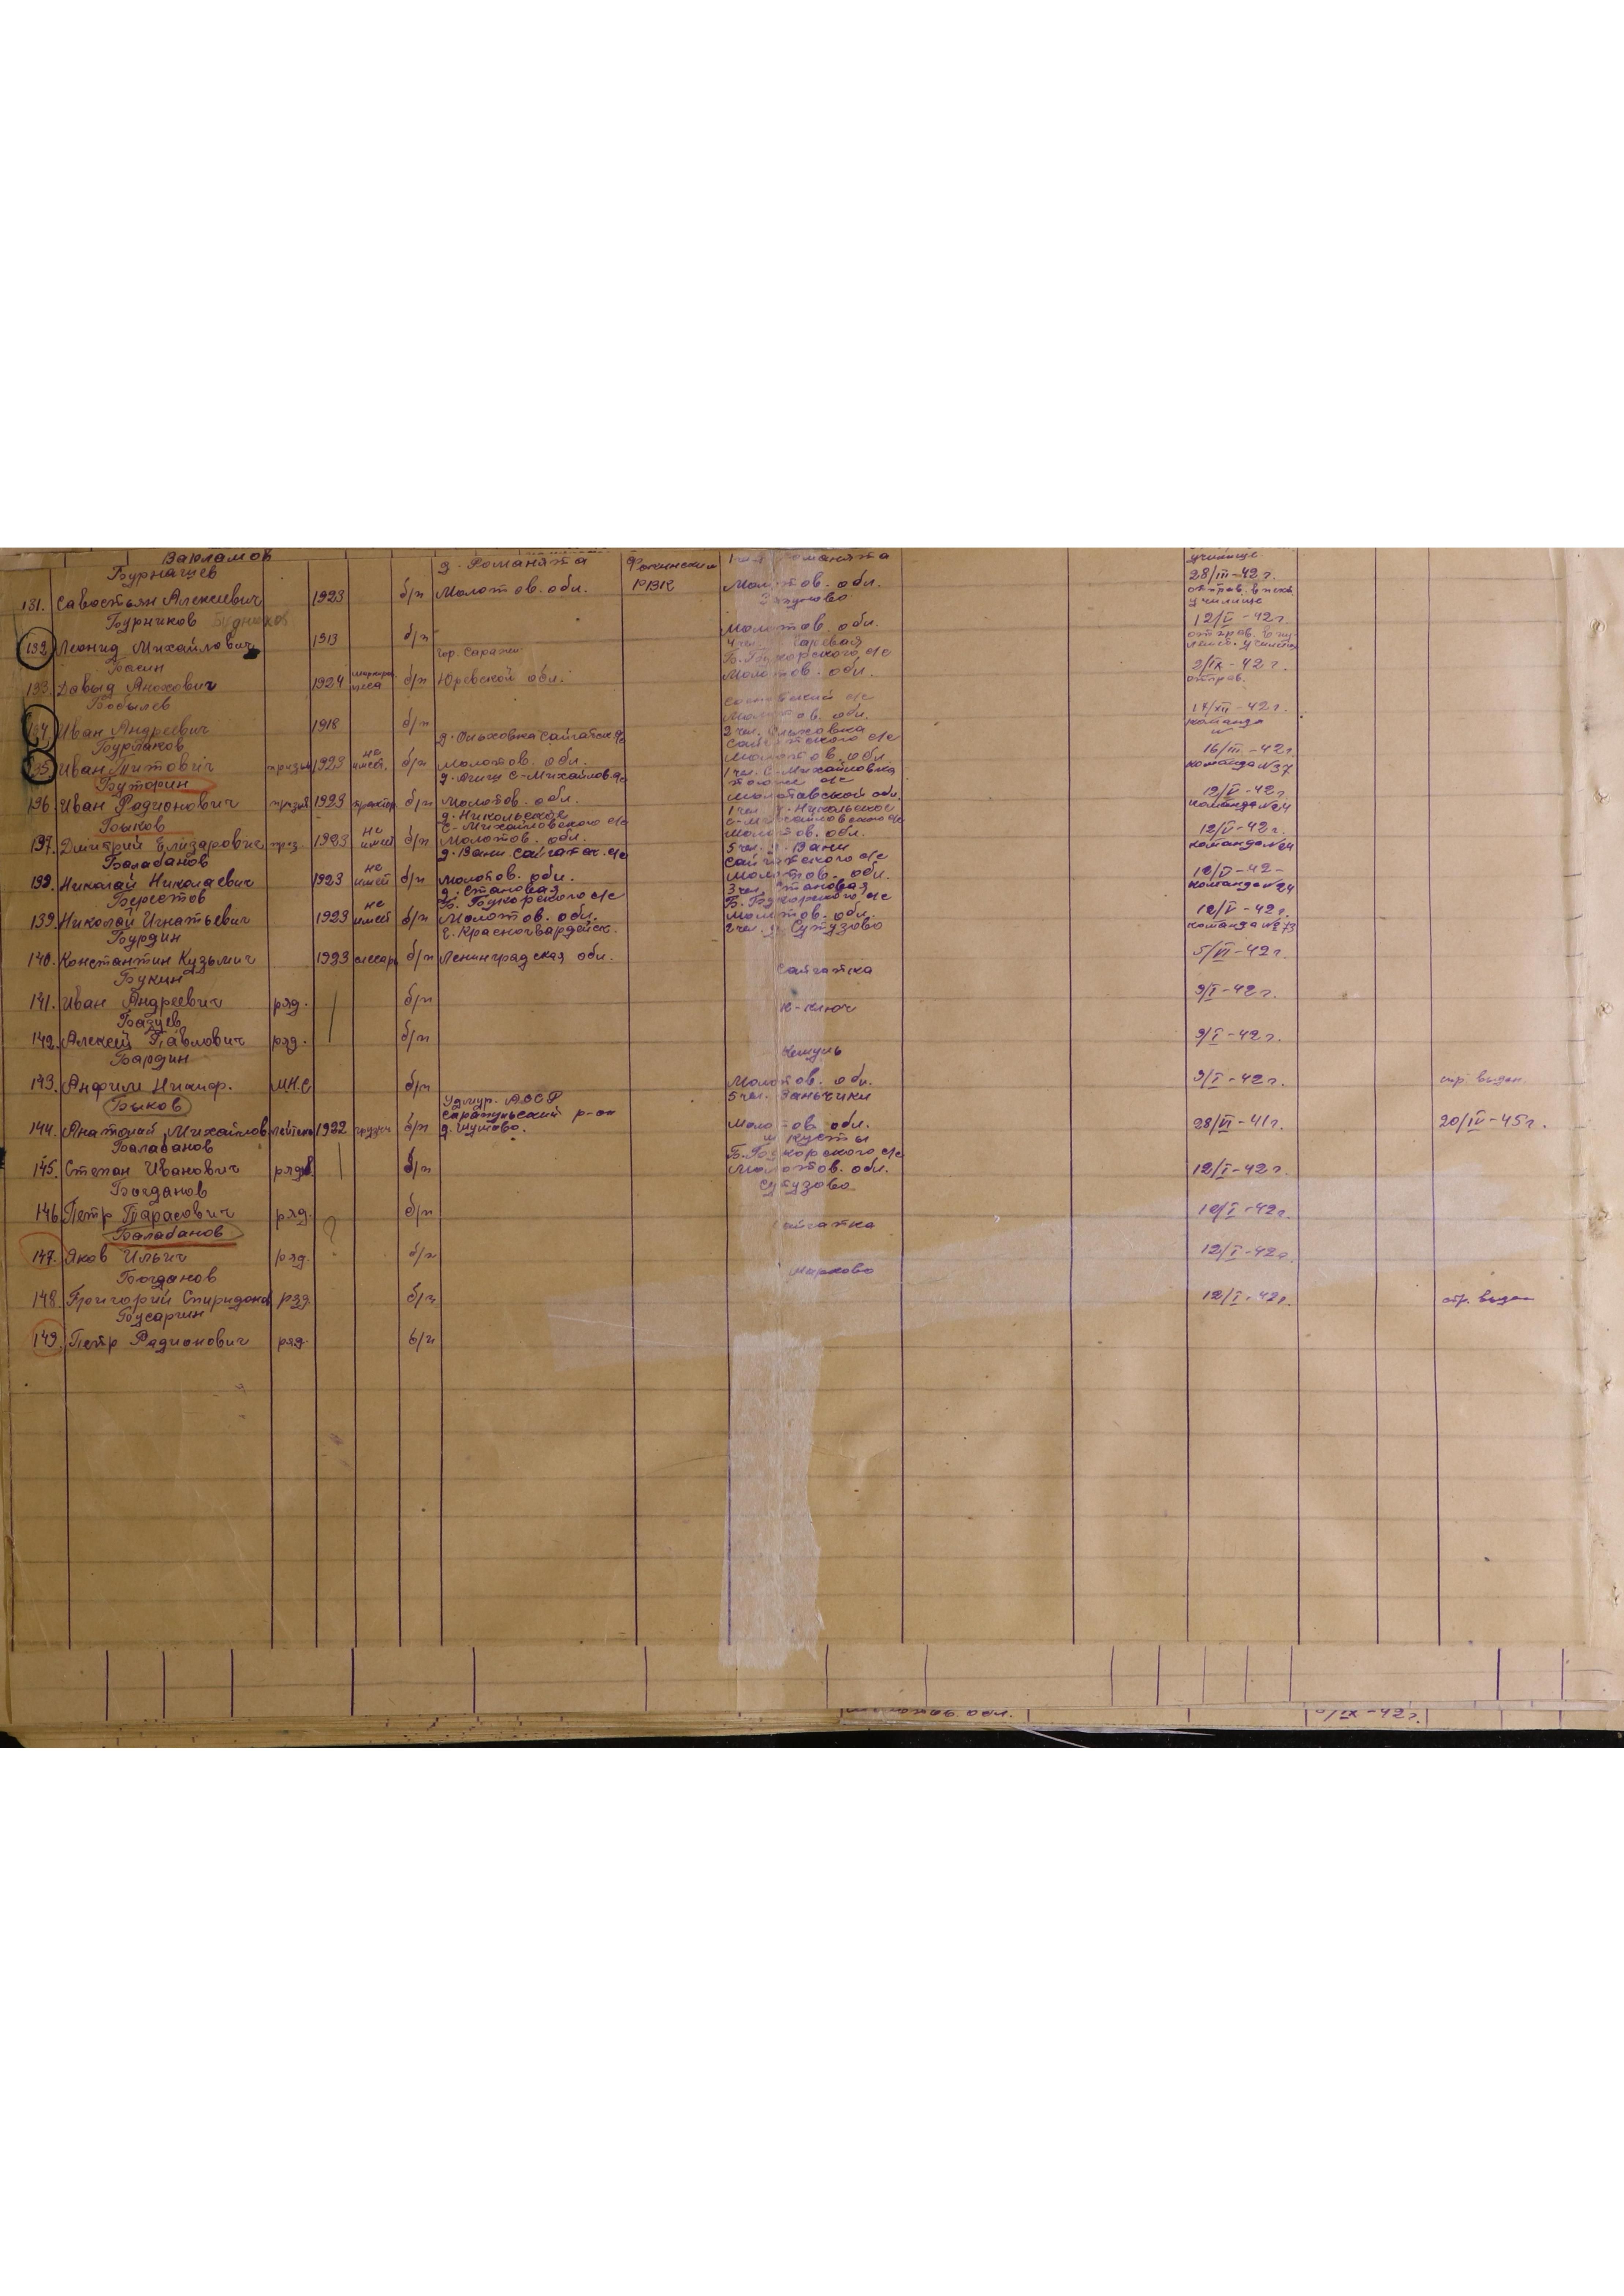 Варламов
д. Романята Фокинский учинище
Бурнашев РВК 28/III-42 г.
131. Савостьян Алексеевич 1923 б/п Молотов. обл. Молотов. обл. отправ. в пех.
училище
Бурников Будников 12/V-42 г.
132. Леонид Михайлович 1913 б/п Молотов. обл.
гор. Б. Букорского с/с
Басин 2/IX-42 г.
133. Давыд 1924 б/п обл. Молотов. обл. отправ.
Бобылев с/с 17/XII-42 г.
134. Иван Андреевич 1918 б/п Молотов. обл. команда
д. Ольховка Сайгатск. с/с 2 чел. Ольховка
Бурлаков Сайгатского с/с 16/III-42 г.
135. Иван Титович 1923 не имеет. б/п Молотов. обл. Молотов. обл. команда №37
С-Михайлов. с/с 1 чел. С-Михайловка
Буторин тогоже с/с 12/V-42 г.
136. Иван Родионович 1923 трактор б/п Молотов. обл. Молотовской обл. команда №24
д. Никольское 1 чел. д. Никольское
Быков С-Михайловского с/с С-Михайловского с/с 12/V-42 г.
137. Дмитрий Елизарович 1923 не имеет б/п Молотов. обл. Молотов. обл. команда №24
д. Вани Сайгатск. с/с 5 чел. д. Вани
Балабанов Сайгатского с/с 12/V-42-
138. Николай Николаевич 1923 не имеет б/п Молотов. обл. Молотов. обл. команда №24
д. Становая 3 чел. Становая
Берестов Б. Букорского с/с Б. Букорского с/с 12/V-42 г.
139. Николай Игнатьевич 1923 не имеет б/п Молотов. обл. Молотов. обл. команда №273
Бурдин г. Красногвардейск. 2 чел. д. Сутузово
140. Константин Кузьмич 1923 слесарь б/п Ленинградская обл. 5/VI-42 г.
Букин Сайгатка
141. Иван Андреевич ряд. б/п 9/I-42 г.
Базуев К-Ключ
142. Алексей Павлович ряд. б/п 9/I-42 г.
Бардин Кемуль
143. Анфим Никифор. М.Н.С б/п Молотов. обл. 9/I-42 г.
Быков Удмур. АССР 5 чел. Ваньчики
Сарапульский р-он
144. Анатолий Михайлов 1922 б/п д. Шутово. Молотов. обл. 28/VI-41 г. 20/IV-45 г.
Балабанов Кусты
Б. Букорского с/с
145. Степан Иванович рядов. б/п Молотов. обл. 12/I-42 г.
Богданов Сутузово
146. Петр Тарасович ряд. б/п 12/I-42 г.
Балабанов Сайгатка
147. Яков Ильич ряд. б/п 12/I-42 г.
Богданов Марково
148. Григорий Спиридонов ряд. б/п 12/I-42 г.
Бусаргин
149. Петр Радионович ряд. б/п
обл. /IX-42 г.